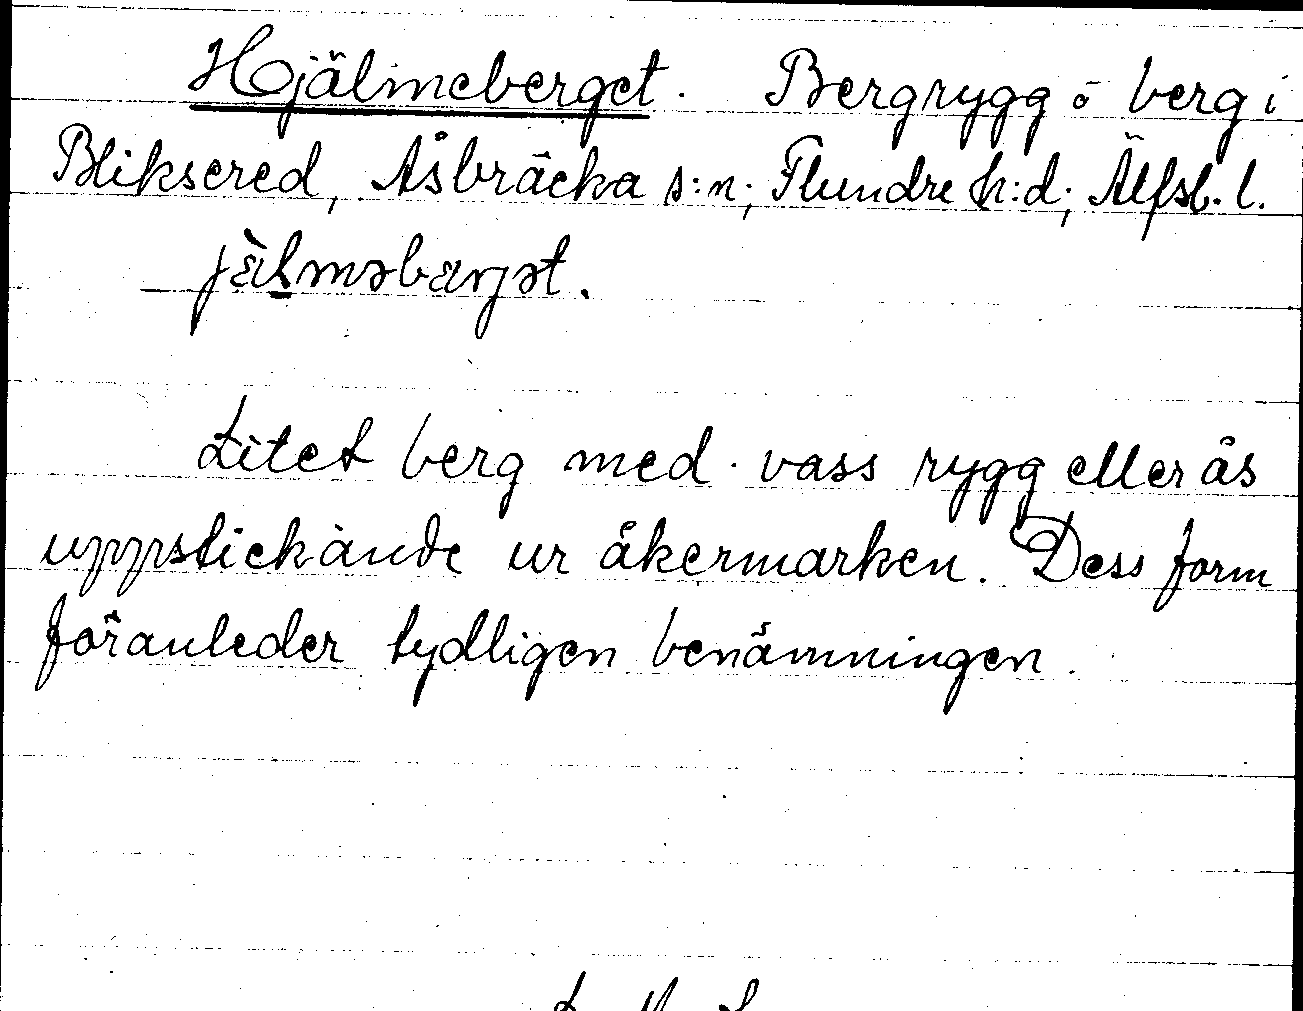 Hjälmeberget. Bergrygg o berg i
Bliksered, Åsbräcka s:n; Flundre h:d; Älfsb. l.
jälməbærjət.
Litet berg med vass rygg eller ås
uppstickande ur åkermarken. Dess form
föranleder tydligen benämningen.